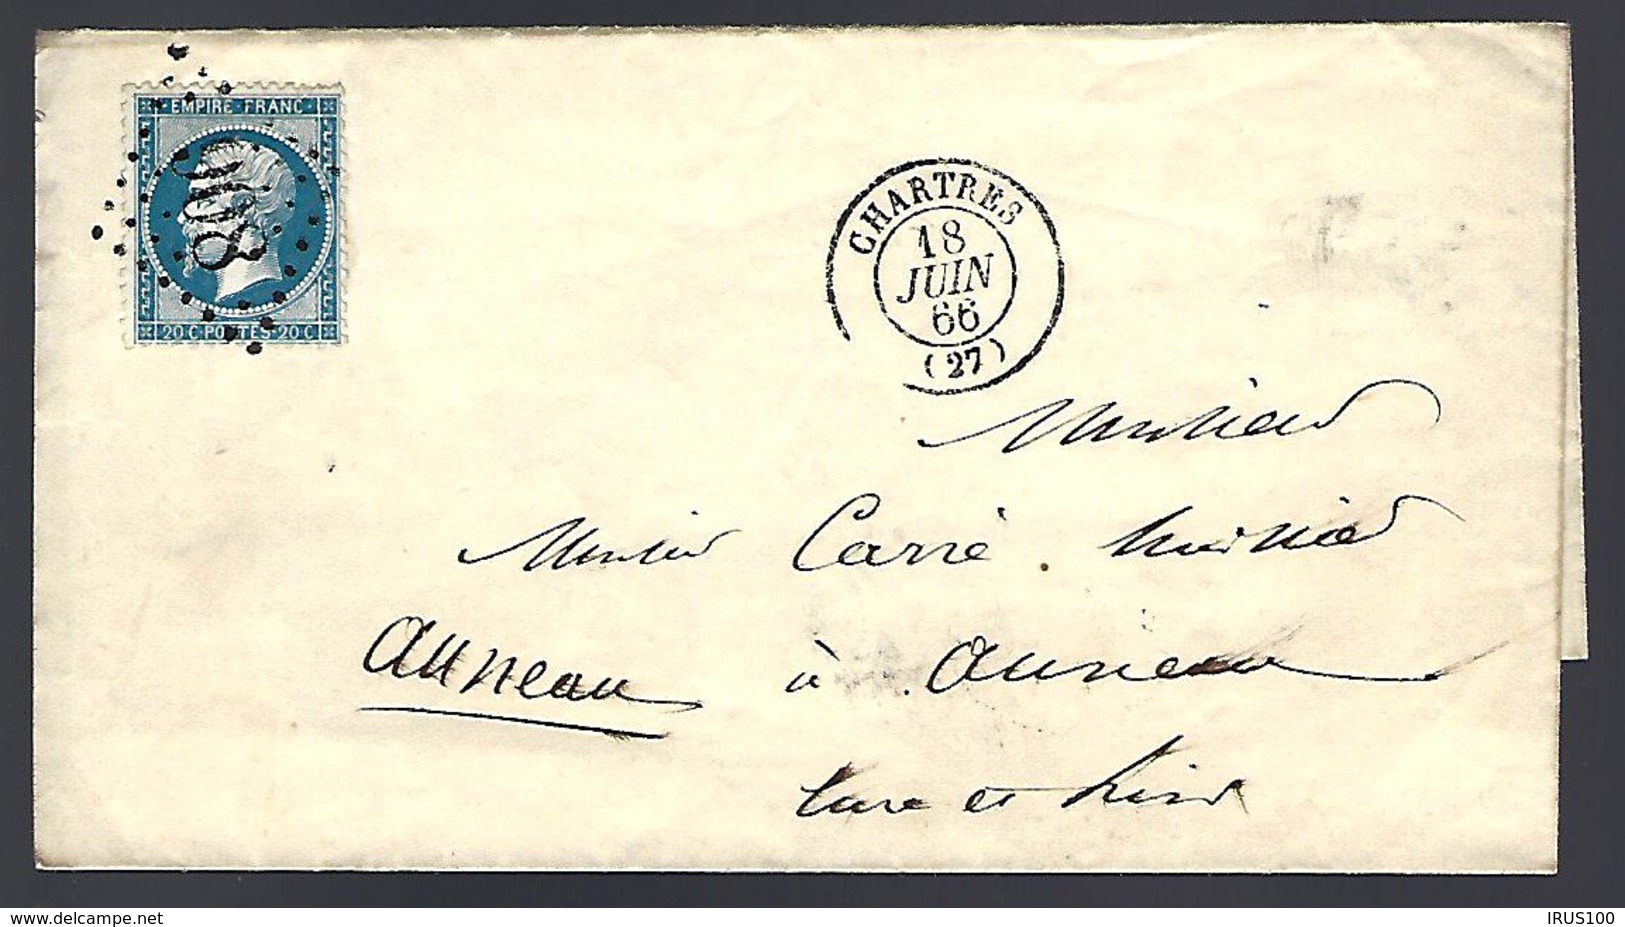 EMPIRE FRANC
908
20 C POSTES 20 C
CHARTRES
18
JUIN
66
(27)
Monsieur
Monsieur Carré huissier
Auneau à auneau
Eure et Loir
www.delcampe.net
IRUS100